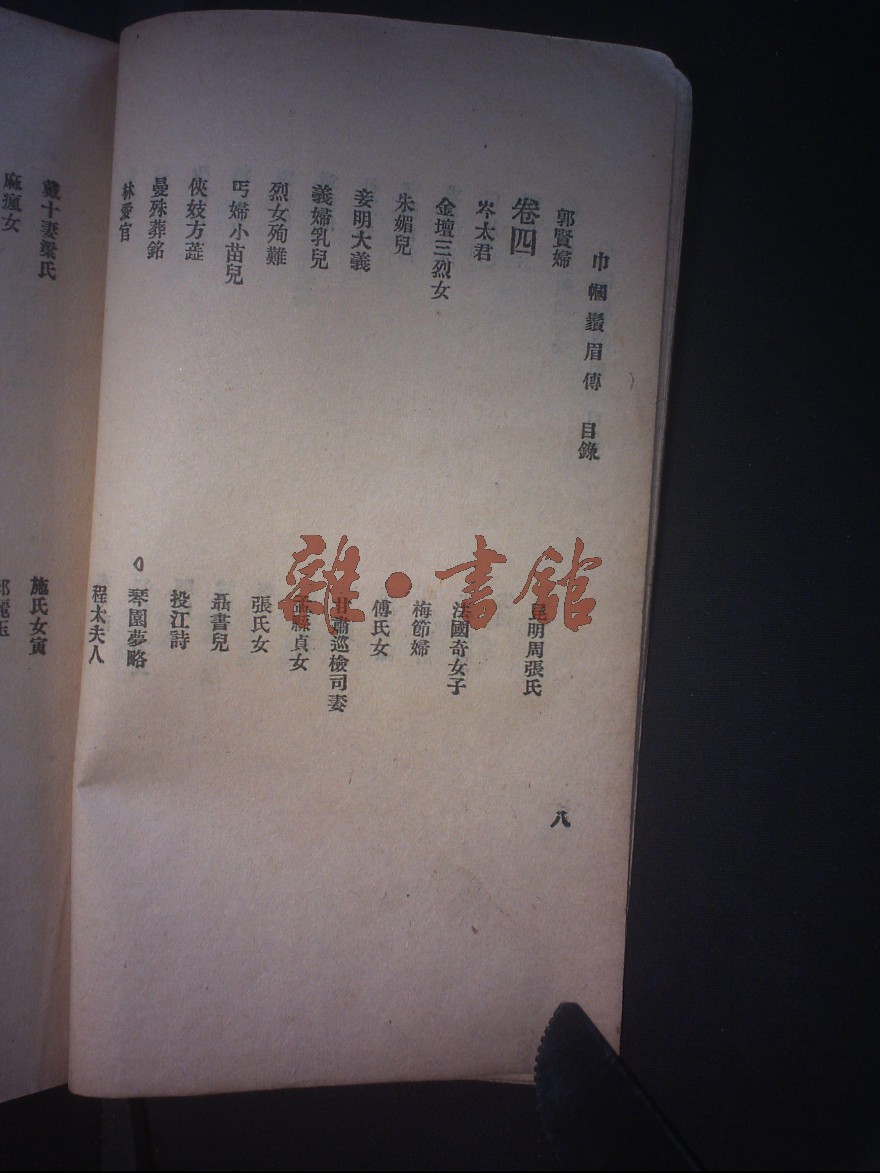 巾幗鬚眉傳 目錄
八
郭賢婦
昆明周張氏
卷四
岑太君
法國奇女子
金壇三烈女
梅節婦
朱媚兒
傅氏女
妾明大義
甘肅巡檢司妻
義婦乳兒
孟縣貞女
烈女殉難
張氏女
丐婦小苗兒
聶書兒
俠妓方蓝
投江詩
曼殊葬銘
琴園夢略
林愛官
程太夫人
戴十妻梁氏
施氏女寅
麻瘋女
雜·書館